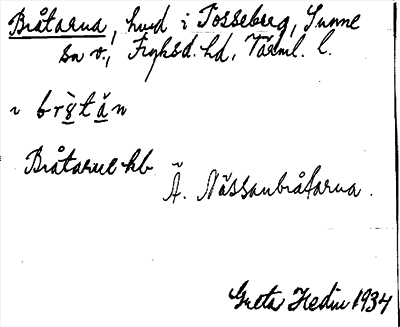 Bråtarna, hmd i Tosseberg, Sunne
sn v., Fryksd. hd, Värml. l.
Bråtarne hb
Ä. Nässanbråtarna.
Greta Hedin 1934